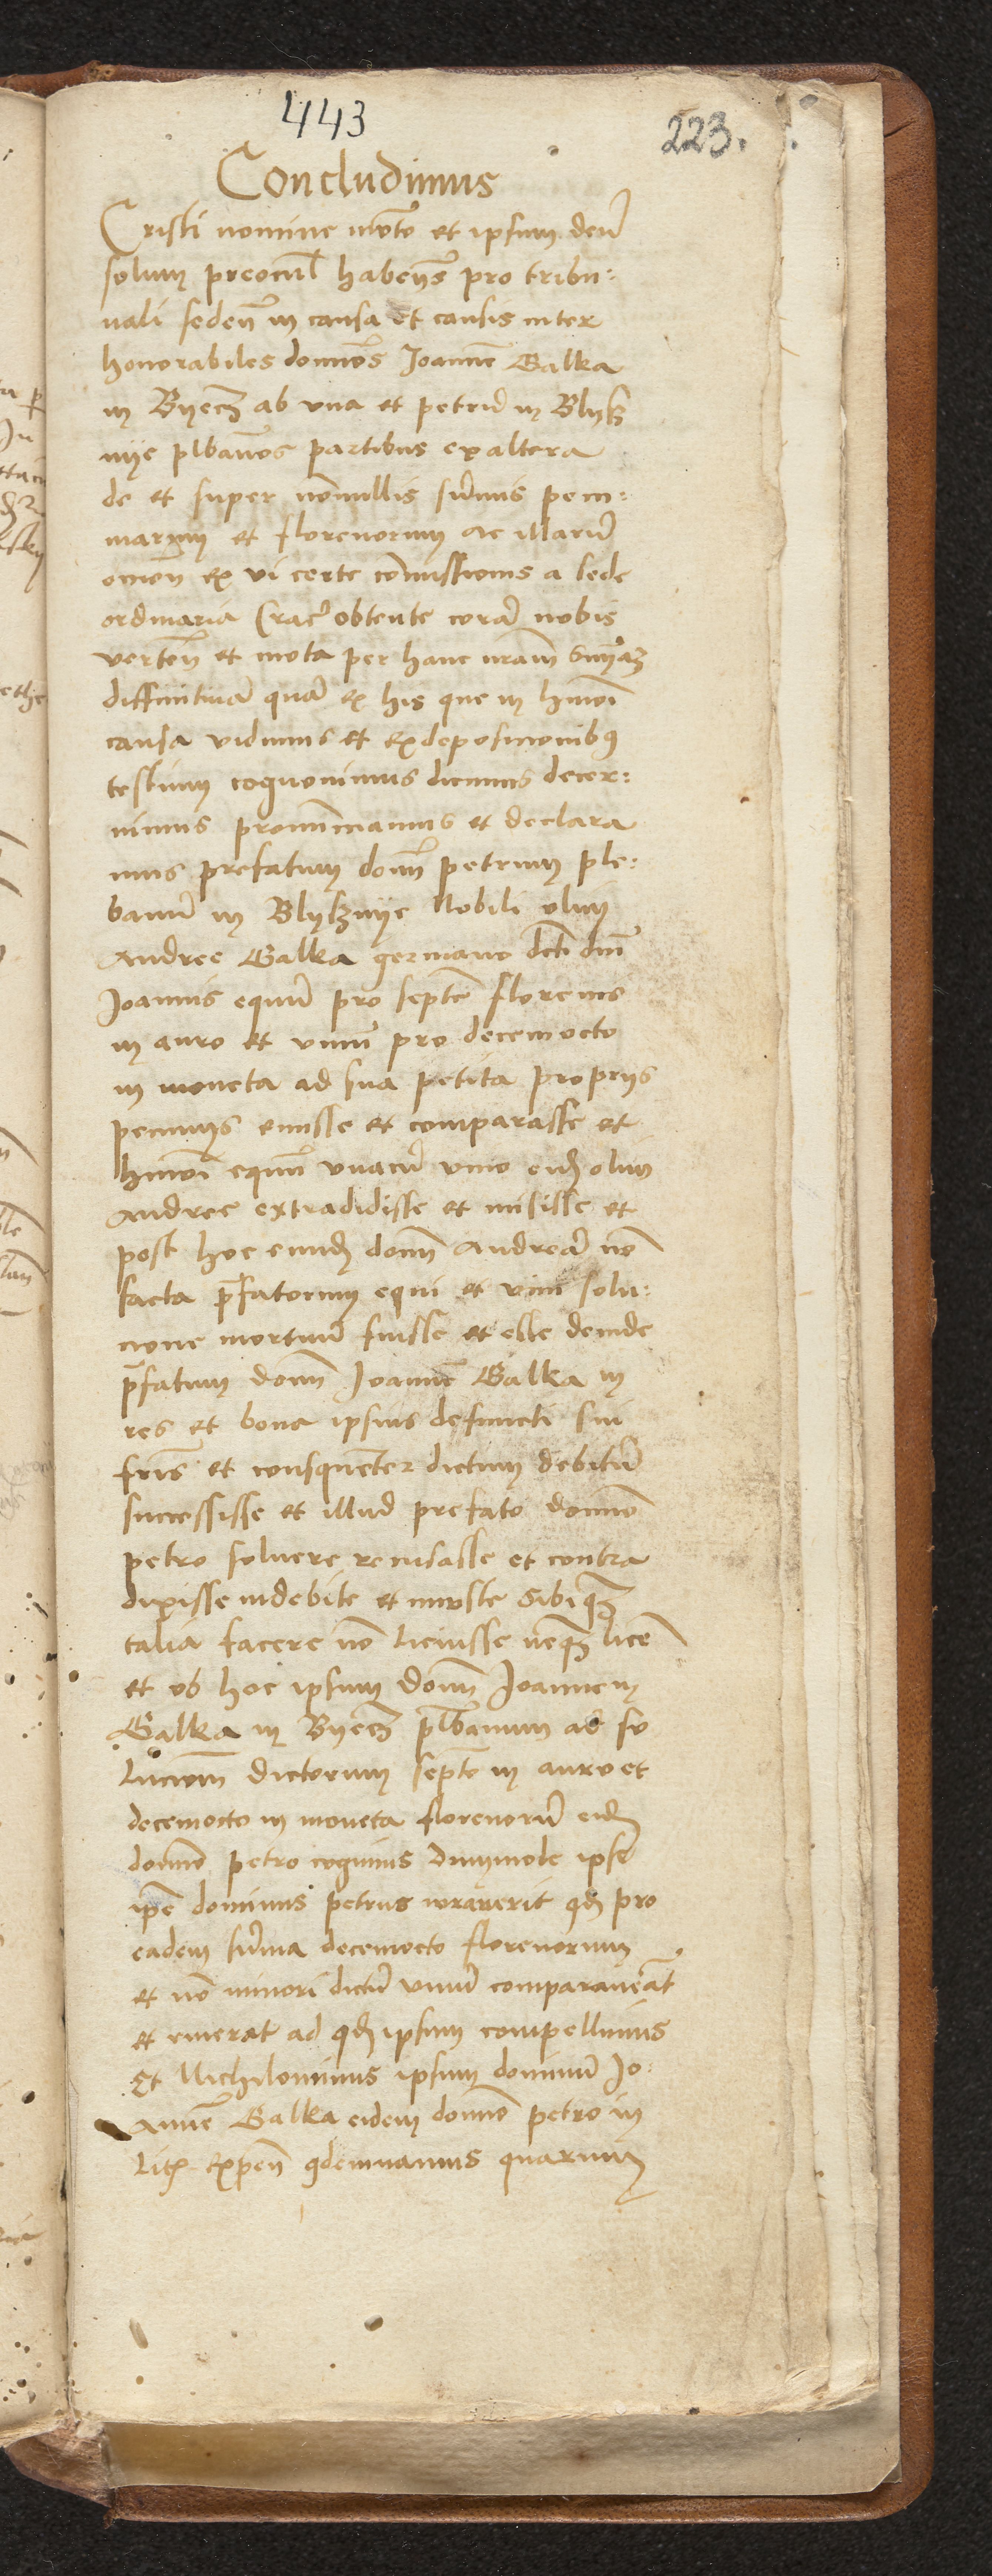 443
223.
Concludimus
Cristi nomine inuocato et ipsum deū
solum preocul habens pro tribu:
nali seden in causa et causis inter
honorabiles dominos Joannē Galka
in Byecz ab vna et petrū in Blysz
nye plbanos partibus exaltera
de et super nonnullis sūmis pecu:
niarum et florenorum ac illarū
omōn ex vi certe cōmissionis a sede
ordinaria Crac obtente corā nobis
verten et mota per hanc nrām snīaz
diffinitiuā quā ex his que in hmōi
causa vidimus et exdeposicionibꝰ
testium cognouimus dicimus decer:
nimus pronunciamus et declara
mus prefatum domn petrum ple:
banū in Blysznye Nobili olim
Andree Galka germano dcti dni
Joannis equū pro septē florenis
in auro et vinū pro decemocto
in moneta ad sua petita proprys
pecunys emisse et comparasse et
hmōi equū vnacū vino eidē olim
Andree extradidisse et misisse et
post hoc eundē domn Andreā nō
facta p̄fatorum equi et vini solu:
cione mortuū fuisse et esse deinde
p̄fatum domn Joannē Galka in
res et bona ipsius defuncti sui
fris et consequenter dictum debitū
successisse et illud prefato domino
petro soluere recusasse et contra
dixisse indebite et iniuste sibiqꝫ
talia facere nō licuisse neqꝫ licē
et ob hoc ipsum domn Joannem
Galka in Byecz plbanum ad so
lucionem dictorum septē in auro et
decemocto in moneta florenorū eidē
domino petro cogimus dummodo ipse
ipē dominus petrus iurauerit qd pro
eadem sūma decemocto florenorum
et nō minori dictū vinū comparauerat
et emerat ad qd ipsum compellimus
Et Nichilominus ipsum dominū Jo
annē Galka eidem domino petro in
Litis expen 9demnamus quarum